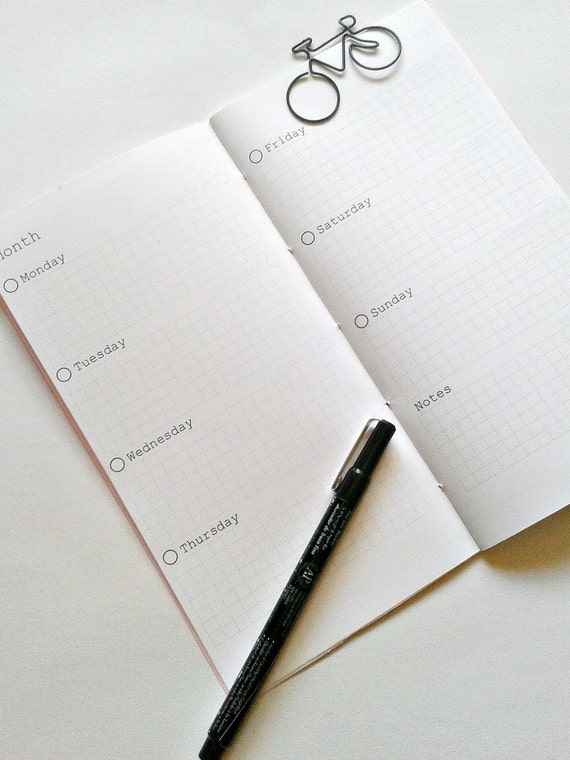 Month
Monday
Tuesday
Wednesday
Thursday
Friday
Saturday
Sunday
Notes
AP